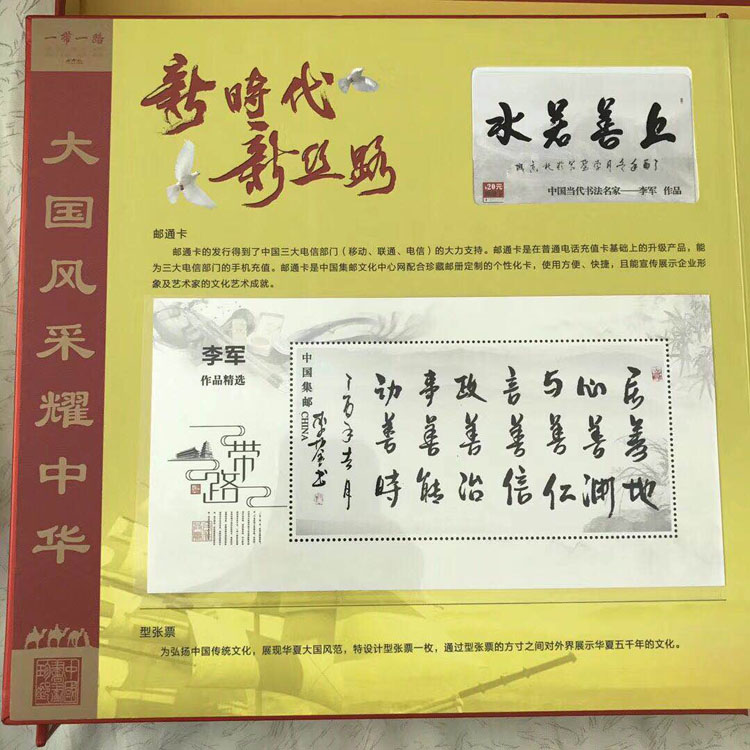 一带一路
大国风采耀中华
新時代
新丝路
上善若水
丁酉年
¥20元
中国当代书法名家——李军 作品
邮通卡
邮通卡的发行得到了中国三大电信部门（移动、联通、电信）的大力支持。邮通卡是在普通电话充值卡基础上的升级产品，能
为三大电信部门的手机充值。邮通卡是中国集邮文化中心网配合珍藏邮册定制的个性化卡，使用方便、快捷，且能宣传展示企业形
象及艺术家的文化艺术成就。
李军
作品精选
一带
一路
中国集邮
CHINA
居善地
心善渊
与善仁
言善信
政善治
事善能
动善時
丁酉年吉月
李军书
型张票
为弘扬中国传统文化，展现华夏大国风范，特设计型张票一枚，通过型张票的方寸之间对外界展示华夏五千年的文化。